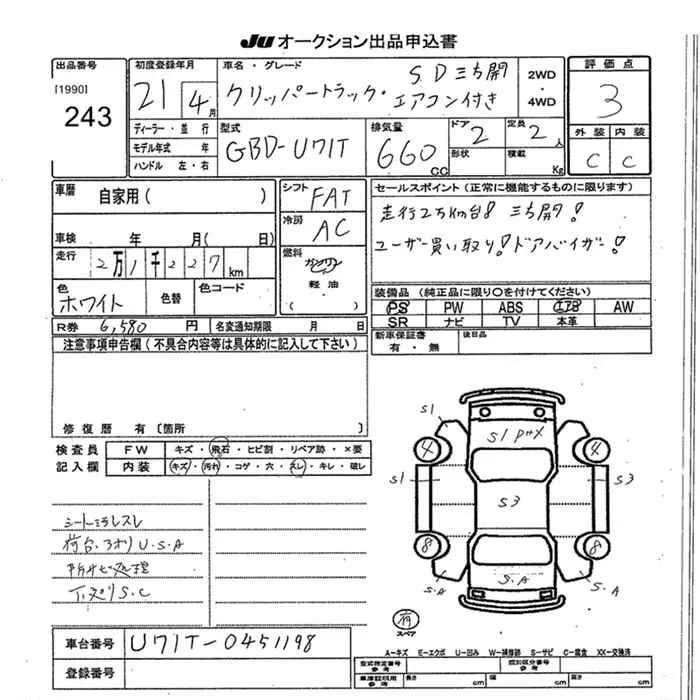 JU オークション出品申込書
出品番号 初度登録年月 車名・グレード S.D 三方開 2WD ・ 4WD 評価点
[1990] 243 21 4月 クリッパートラック・エアコン付き 3
ディーラー・並行 型式 排気量 ドア 2 定員 2人 外装 内装
モデル年式 年 GBD-U71T 660cc 形状 積載 Kg C C
ハンドル 左・右
車暦 自家用( ) シフト FAT セールスポイント(正常に機能するものに限ります)
冷房 AC 走行2万km台! 三方開!
車検 年 月( 日) ユーザー買い取り!ドアバイザー!
走行 2万1千227km 燃料 ガソリン
軽油・
( )
色 ホワイト 色替 色コード 装備品(純正品に限り〇を付けてください)
PS PW ABS AW
R券 6,580円 名変通知期限 月 日 SR ナビ TV 本革
注意事項申告欄(不具合内容等は具体的に記入して下さい) 新車保証書 有・無 後日品
修復暦 有〔箇所 〕
検査員 FW キズ・飛石・ヒビ割・リペア跡・×要
記入欄 内装 キズ・汚れ・コゲ・穴・スレ・キレ・破レ
S1
S1
4 4
S1 S3 S3
8 8
S.A S.A S.A
シート スレ
荷台・アオリ U.S.A
下廻り S.C
スペア
A-キズ E-エクボ U-凹み W-補修跡 S-サビ C-腐食 XX-交換済
車台番号 U71T-0451198
登録番号
型式指定番号 参考 類別区分番号 参考
車庫証明用 参考 長さ cm 幅 cm 高さ cm